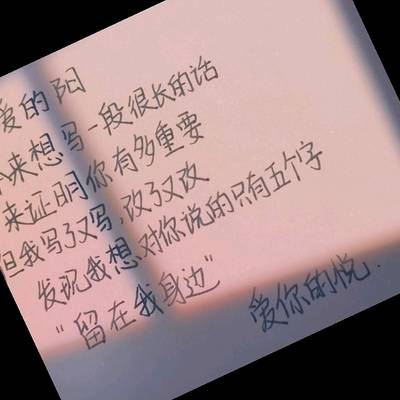 爱的阳
来想写一段很长的话
来证明你有多重要
但我写了又写,改了又改
发现我想对你说的只有五个字
“留在我身边”
爱你的悦.